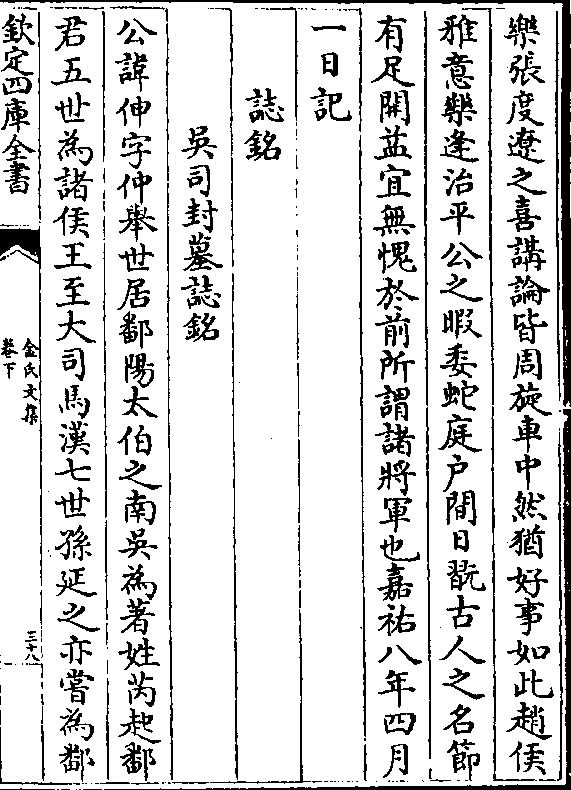 樂張度遼之喜講論皆周旋車中然猶好事如此趙侯
雅意樂逢治平公之暇委蛇庭户間日翫古人之名節
有足開益宜無愧於前所謂諸將軍也嘉祐八年四月
一日記
誌銘
吳司封墓誌銘
公諱伸字仲舉世居鄱陽太伯之南吳為著姓芮起鄱
君五世為諸侯王至大司馬漢七世孫延之亦嘗為鄱
欽定四庫全書
金氏文集
卷下
三十八